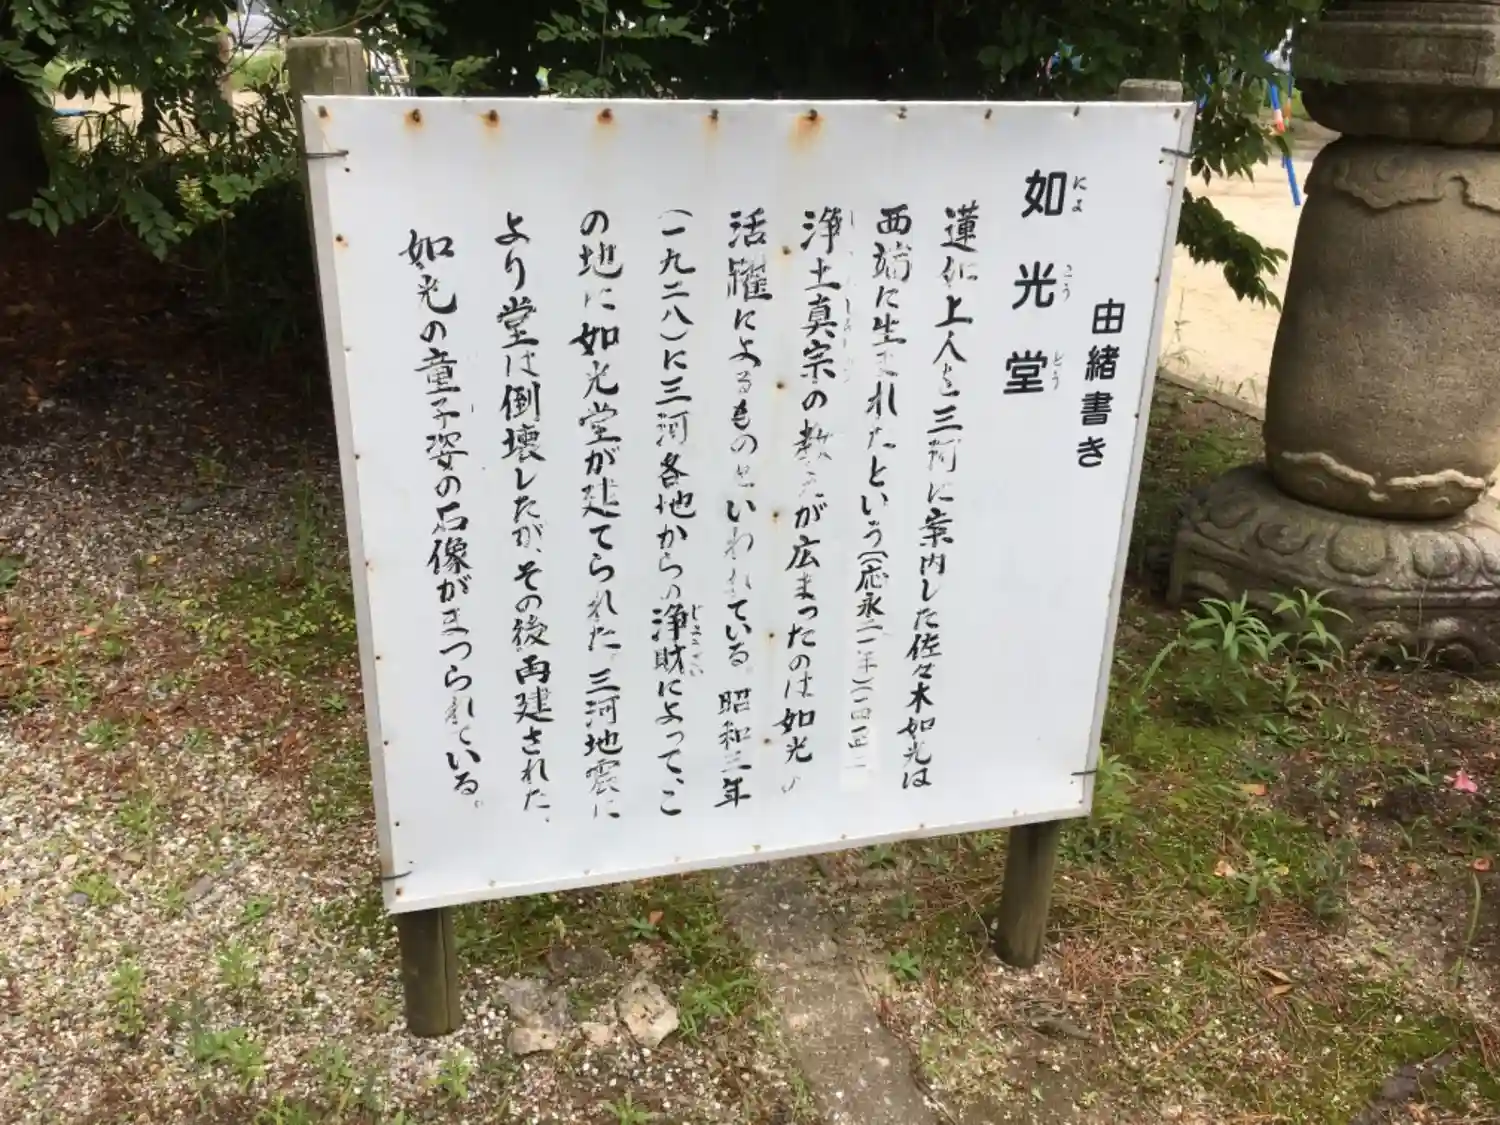 如光堂
にょ こう どう
由緒書き
蓮如上人を三河に案内した佐々木如光は
西端に生まれたという(応永二一年)(一四一
浄土真宗の教えが広まったのは如光の
活躍によるものといわれている。昭和三年
(一九二八)に三河各地からの浄財によって、こ
じょうざい
の地に如光堂が建てられた。三河地震に
より堂は倒壊したが、その後再建された、
如光の童子姿の石像がまつられている。